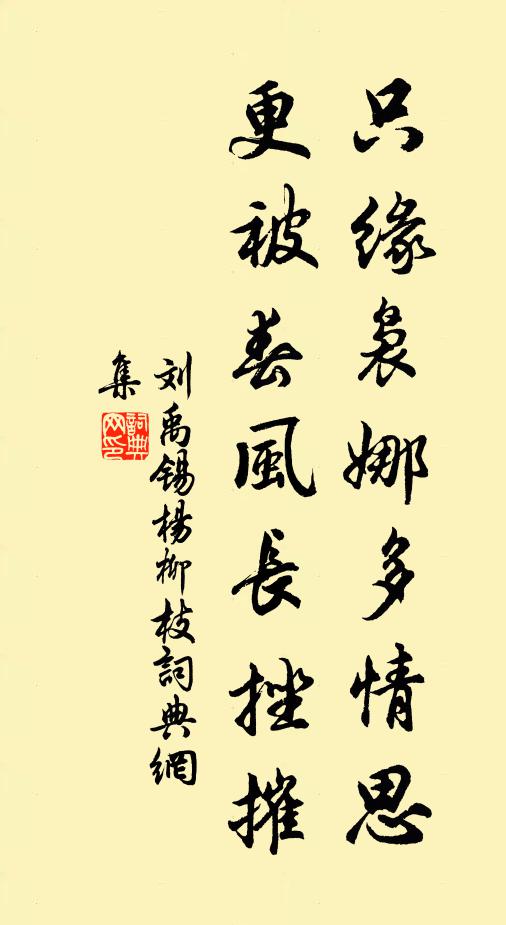 只缘袅娜多情思
更被春風長挫摧
刘禹锡楊柳枝詞典網
集
詞典
网印